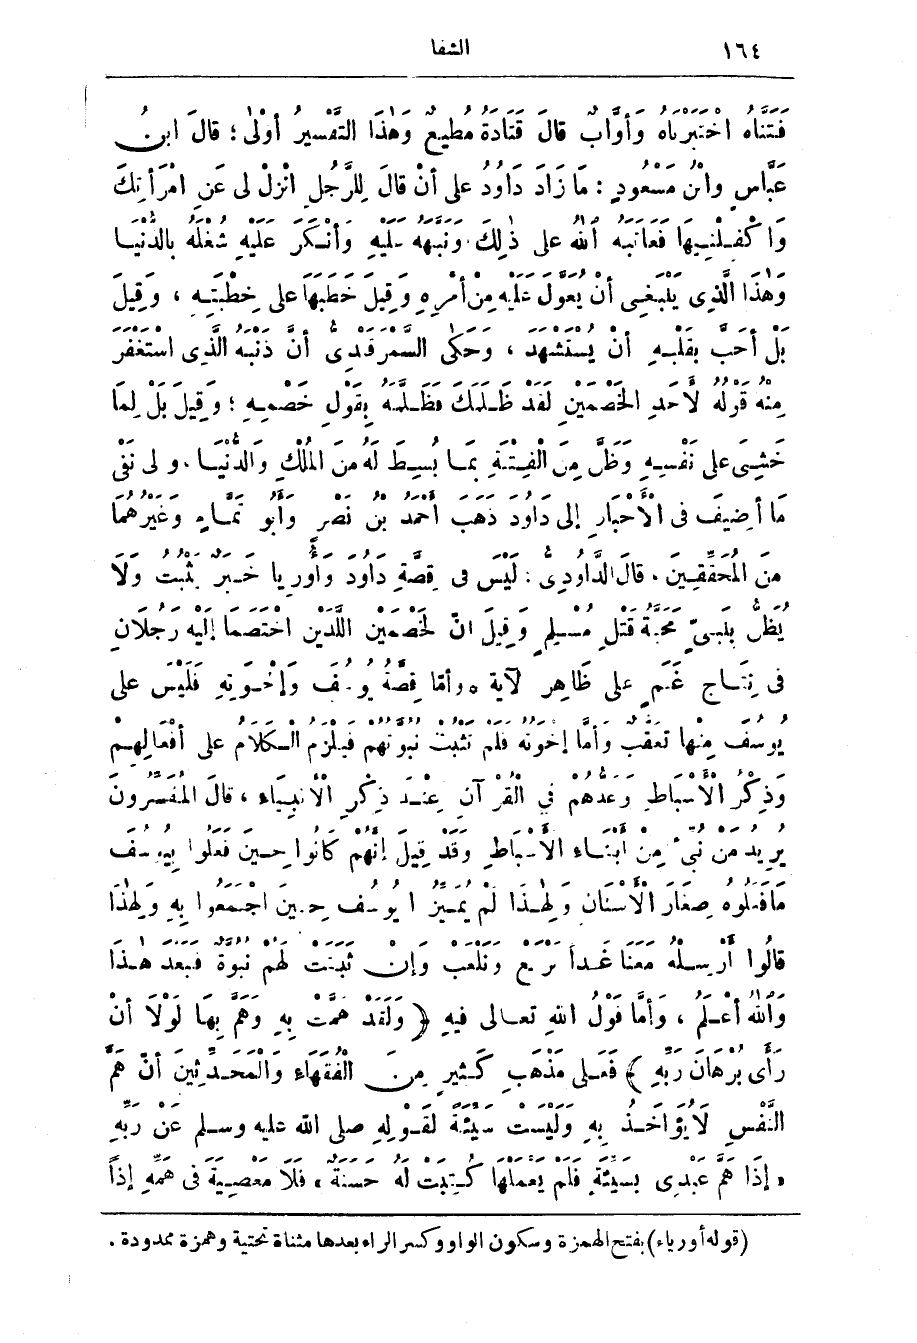 ١٦٤ الشفا
فَتَنَّاهُ اخْتَبَرْنَاهُ وَأَوَّابٌ قَالَ قَتَادَةُ مُطِيعٌ وَهٰذَا التَّفْسِيرُ أَوْلَى ؛ قَالَ ابنُ
عَبَّاسٍ وابْنُ مَسْعُودٍ : مَا زَادَ دَاوُدُ على أَنْ قَالَ لِلرَّجُلِ انْزِلْ لِى عَنِ امْرَأَتِكَ
وَا كْفِلْنِيهَا فَعَاتَبَهُ ٱللهُ على ذٰلِكَ وَنَبَّهَهُ عَلَيْهِ وَأَنْكَرَ عَلَيْهِ شُغْلَهُ بِالدُّنْيَا
وَهٰذَا الَّذِى يَنْبَغِى أَنْ يُعَوَّلَ عَلَيْهِ مِنْ أَمْرِهِ وَقِيلَ خَطَبَهَا عَلى خِطْبَتِهِ ، وَقِيلَ
بَلْ أَحَبَّ بِقَلْبِهِ أَنْ يُسْتَشْهَدَ ، وَحَكَى السَّمَرْقَنْدِىُّ أَنَّ ذَنْبَهُ الَّذِى اسْتَغْفَرَ
مِنْهُ قَوْلُهُ لِأَحَدِ الخَصْمَيْنِ لَقَدْ ظَلَمَكَ فَظَلَّمَهُ بِقَوْلِ خَصْمِهِ ؛ وَقِيلَ بَلْ لِمَا
خَشِىَ على نَفْسِهِ وَظَنَّ مِنَ الْفِتْنَةِ بِمَا بُسِطَ لَهُ مِنَ المُلْكِ وَالدُّنْيَا . و لى نَفْىِ
مَا أُضِيفَ فى الْأَخْبَارِ إلى دَاوُدَ ذَهَبَ أَحْمَدُ بْنُ نَصْرٍ وَأَبُو تَمَّامٍ وَغَيْرُهُمَا
مِنَ المُحَقِّقِينَ . قال الدَّاوُدِىُّ : لَيْسَ فى قِصَّةِ دَاوُدَ وَأُورِيا خَبَرٌ يَثْبُتُ وَلَا
يُظَنُّ بِنَبِىٍّ مَحَبَّةُ قَتْلِ مُسْلِمٍ وَقِيلَ انَّ لخَصْمَيْنِ اللَّذَيْنِ اخْتَصَمَا إِلَيْهِ رَجُلَانِ
فى نِتَاجِ غَنَمٍ على ظَاهِرِ لآية ، وأمَّا قِصَّةُ يُوسُفَ وَإِخْوَتِهِ فَلَيْسَ على
يُوسُفَ مِنْهَا تَعَقُّبٌ وَأَمَّا إِخْوَتُهُ فَلَمْ تَثْبُتْ نُبُوَّتُهُمْ فَيَلْزَمَ الْكَلَامُ على أَفْعَالِهِمْ
وَذِكْرُ الْأَسْبَاطِ وَعَدُّهُمْ فِي الْقُرْآنِ عِنْدَ ذِكْرِ الْأَنْبِيَاءِ ، قَالَ المُفَسِّرُونَ
يُرِيدُ مَنْ نُبِّئَ مِنْ أَبْنَاءِ الْأَسْبَاطِ وَقَدْ قِيلَ إِنَّهُمْ كَانُوا حِينَ فَعَلُوا بِيُوسُفَ
مَا فَعَلُوهُ صِغَارَ الْأَسْنَانِ وَلِهٰذَا لَمْ يُمَيِّزُوا يُوسُفَ حِينَ اجْتَمَعُوا بِهِ وَلِهٰذَا
قالُوا أَرْسِلْهُ مَعَنَا غَداً نَرْتَعْ وَنَلْعَبْ وَإِنْ ثَبَتَتْ لَهُمْ نُبُوَّةٌ فَبَعْدَ هٰذَا
وَٱللهُ أَعْلَمُ ، وَأَمَّا قَوْلُ اللهِ تعالى فِيهِ ﴿ وَلَقَدْ هَمَّتْ بِهِ وَهَمَّ بِهَا لَوْلَا أَنْ
رَأَى بُرْهَانَ رَبِّهِ ﴾ فَعَلى مَذْهَبِ كَثِيرٍ مِنَ الْفُقَهَاءِ وَالْمُحَدِّثِينَ أَنَّ هَمَّ
النَّفْسِ لَا يُؤَاخَذُ بِهِ وَلَيْسَتْ سَيِّئَةً لِقَوْلِهِ صلى الله عليه وسلم عَنْ رَبِّهِ
« إِذَا هَمَّ عَبْدِى بِسَيِّئَةٍ فَلَمْ يَعْمَلْهَا كُتِبَتْ لَهُ حَسَنَةٌ ، فَلَا مَعْصِيَةَ فى هَمِّهِ إذاً
(قوله أورياء) بفتح الهمزة وسكون الواو وكسر الراء بعدها مثناة تحتية وهمزة ممدودة .